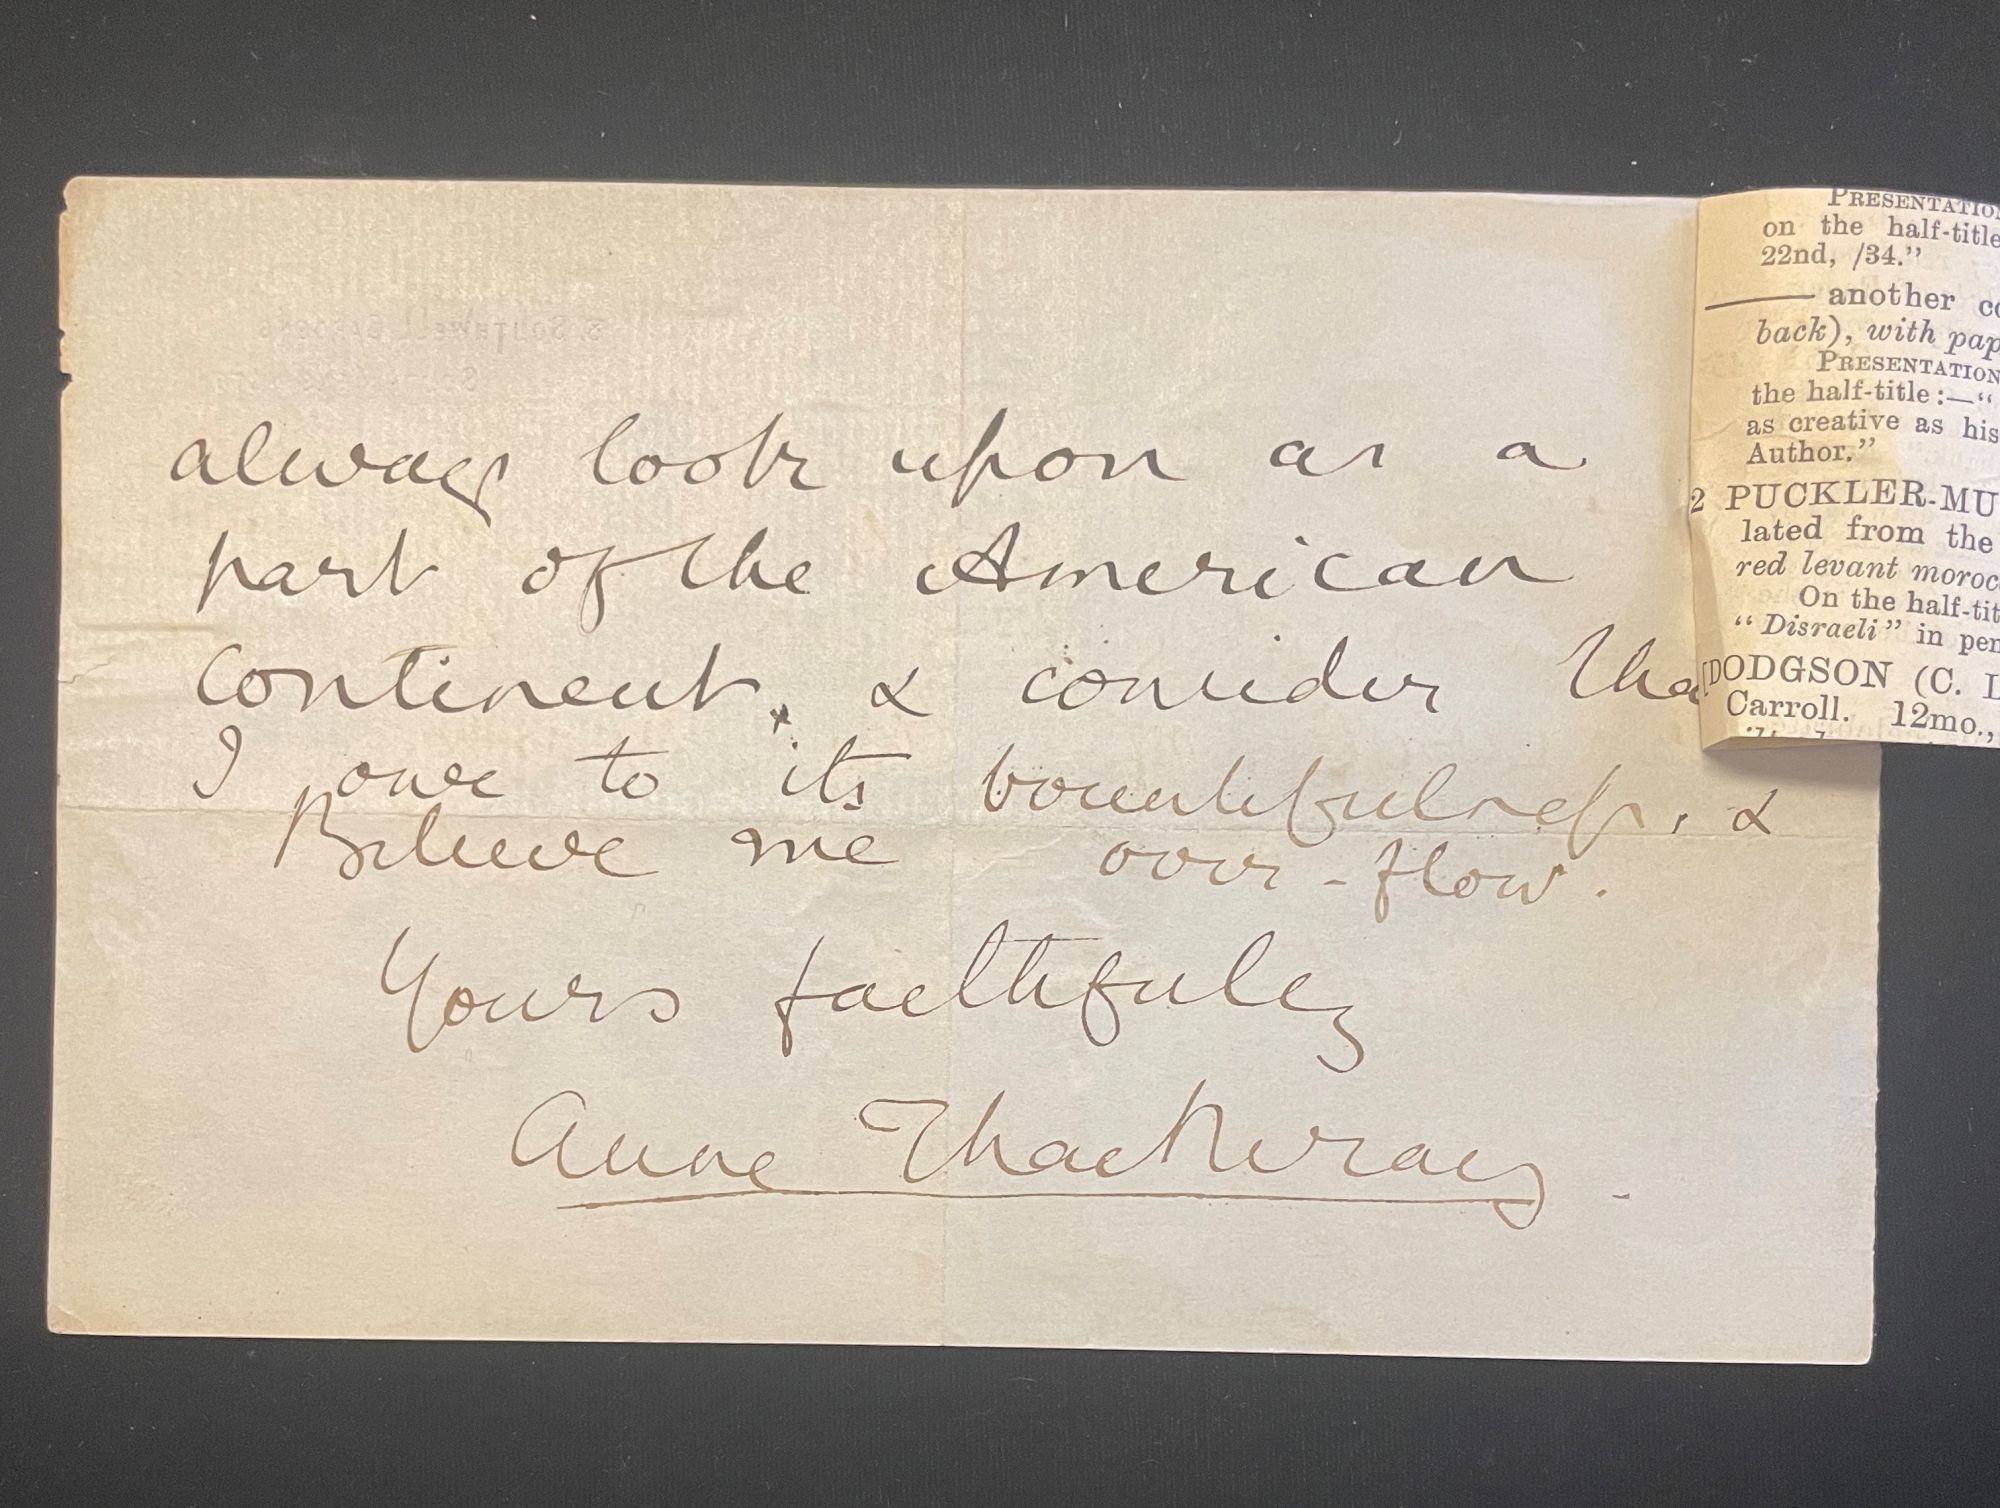 always look upon as a
part of the American
Continent, & consider tha
I owe to its bountifulness, &
over-flow.
Believe me
Yours faithfully
Anne Thackeray.
PRESENTATION
on the half-title
22nd, /34."
another co
back), with pap
PRESENTATION
the half-title:—"
as creative as his
Author."
2 PUCKLER-MU
lated from the
red levant moroc
On the half-tit
"Disraeli" in pen
[DODGSON (C. L
Carroll. 12mo.,